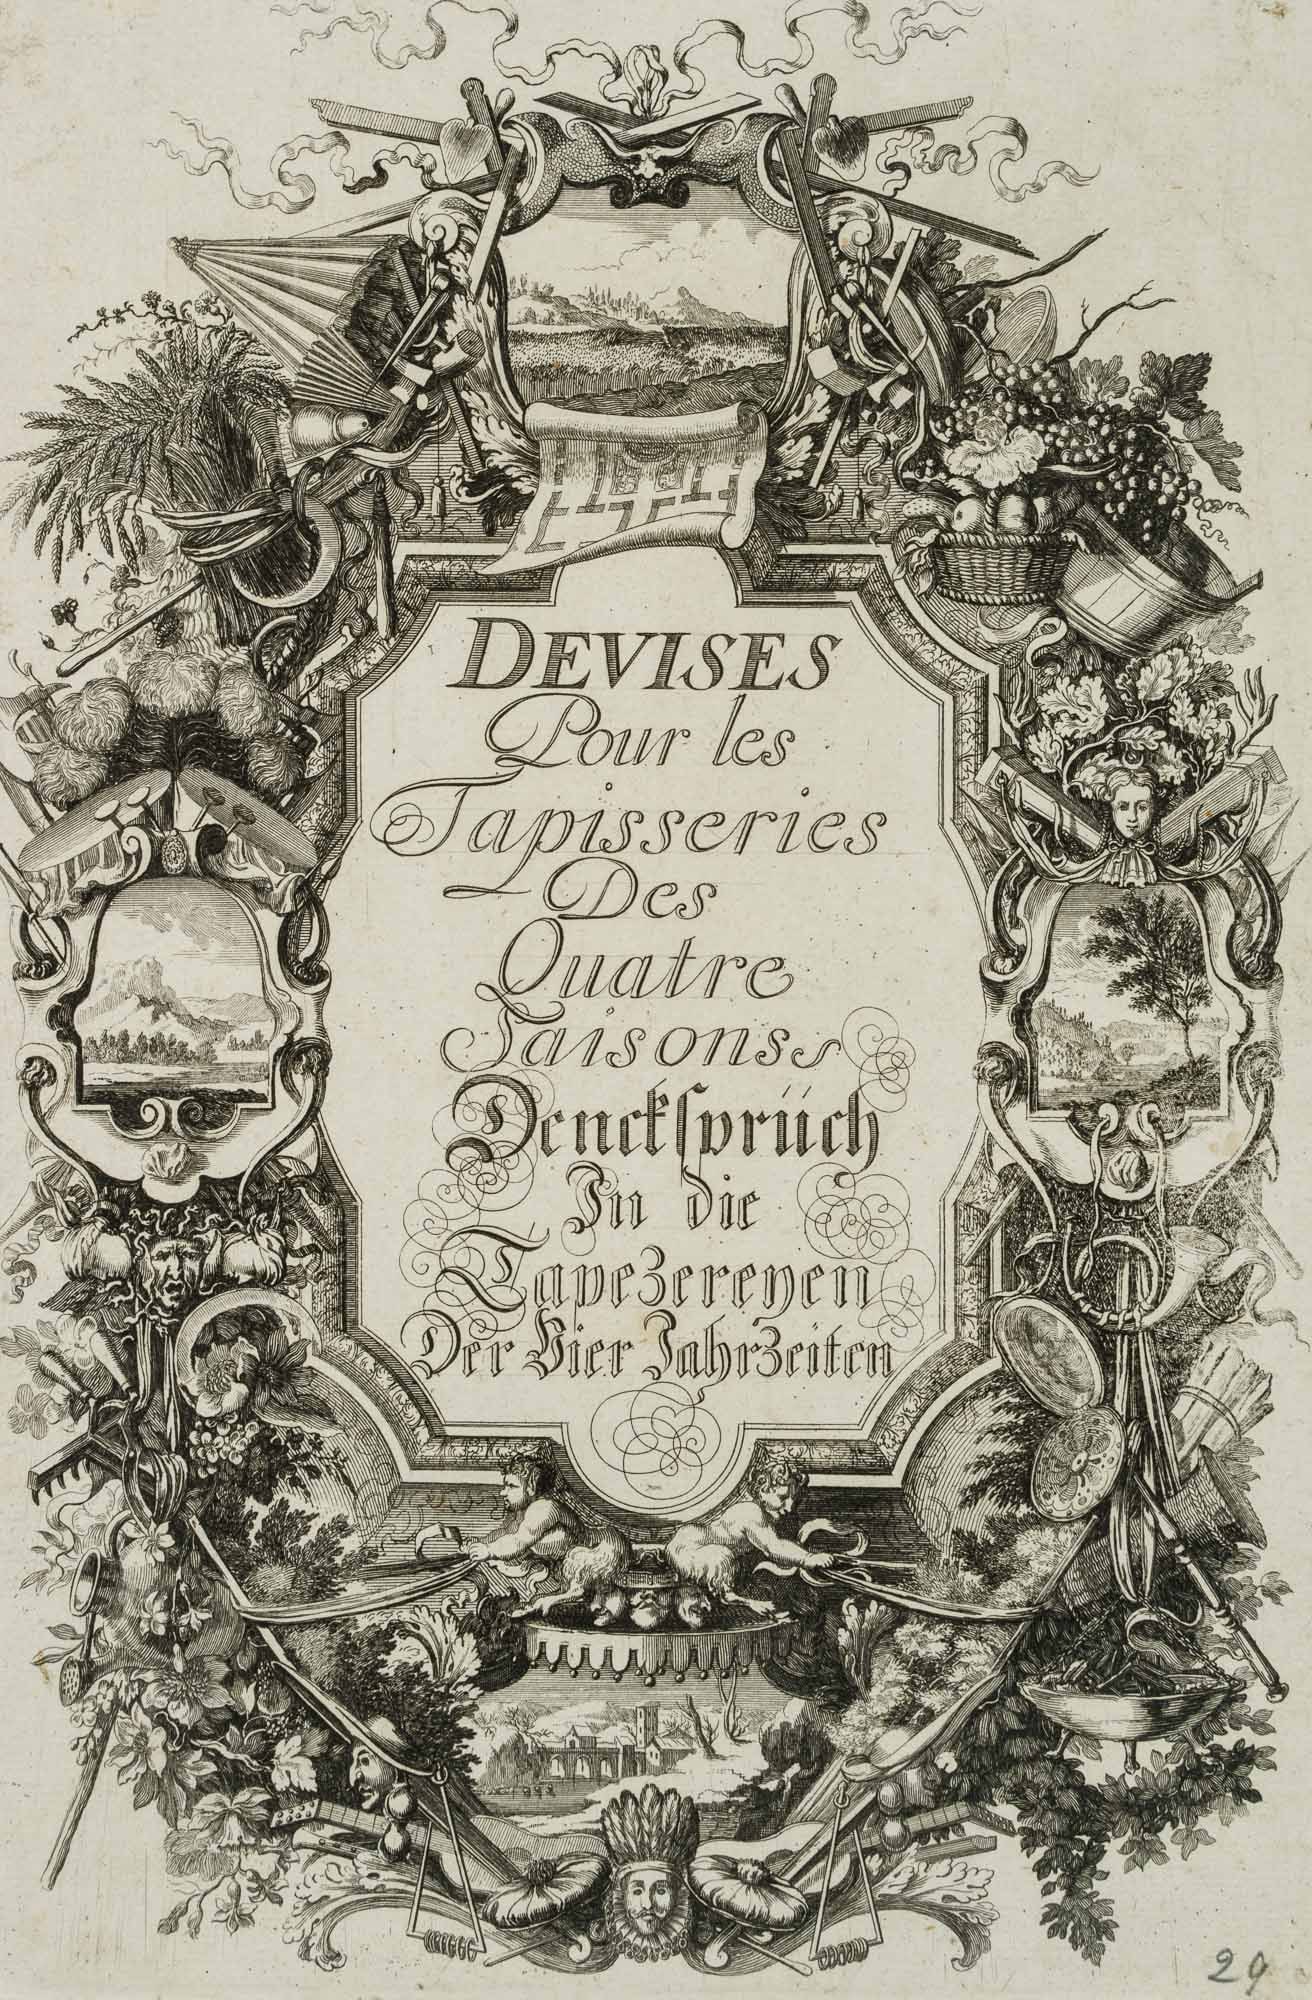 DEVISES
Pour les
Tapisseries
Des
Quatre
Saisons
Denckſprüch
In die
Tapezereyen
Der Vier Jahrzeiten
29